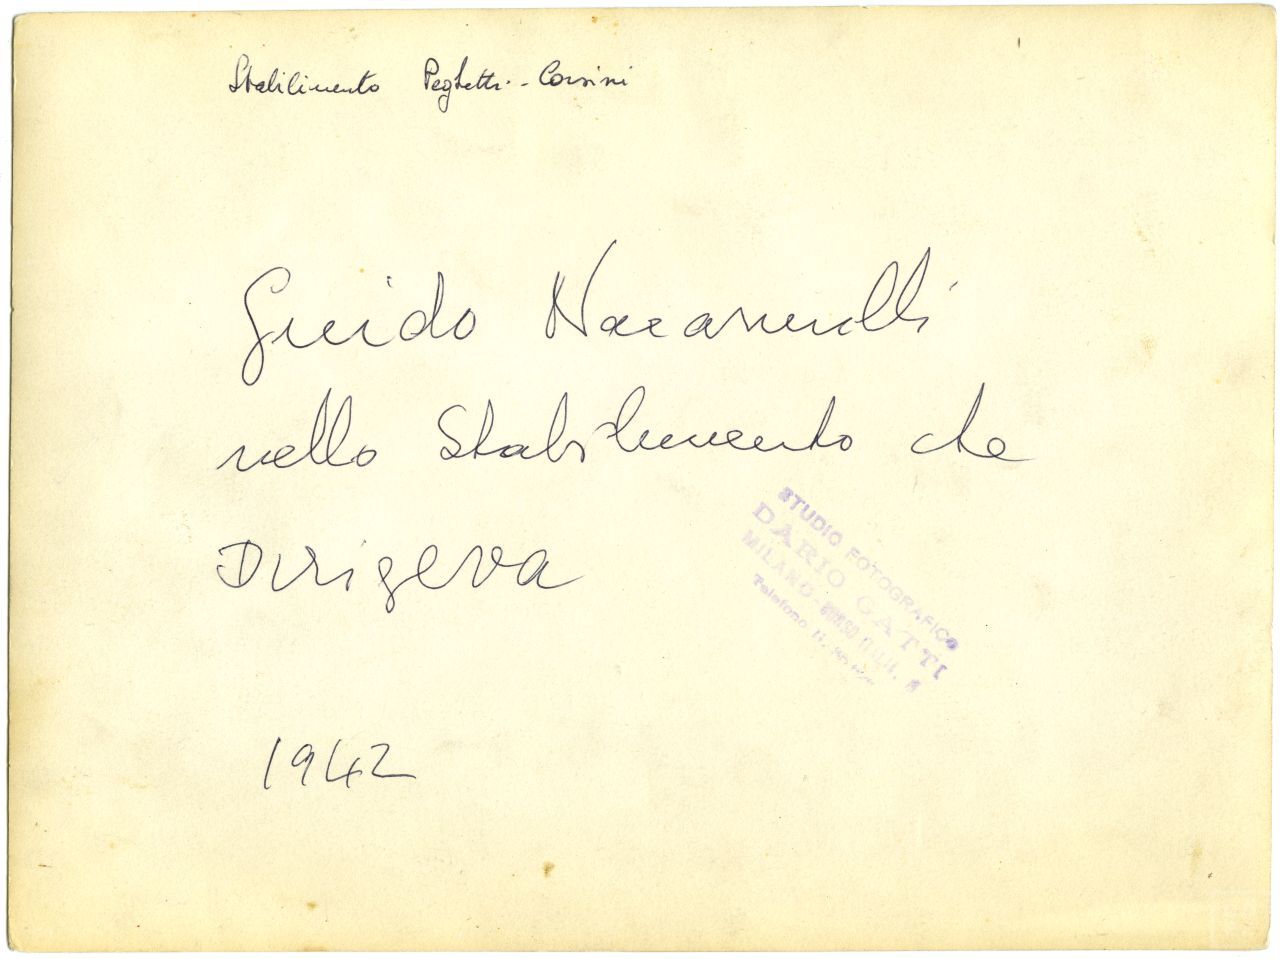 Stabilimento Peghetti - Corsini
Guido
nello Stabilimento che
Dirigeva
STUDIO FOTOGRAFICO
DARIO GATTI
MILANO - CORSO
Telefono
1942